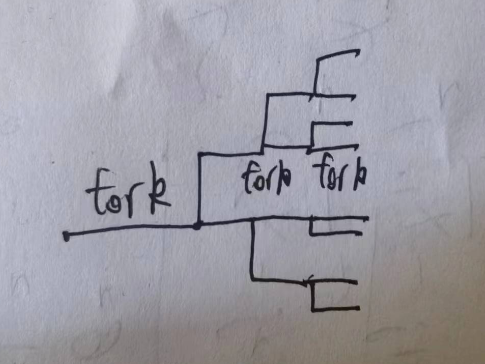 fork
fork fork